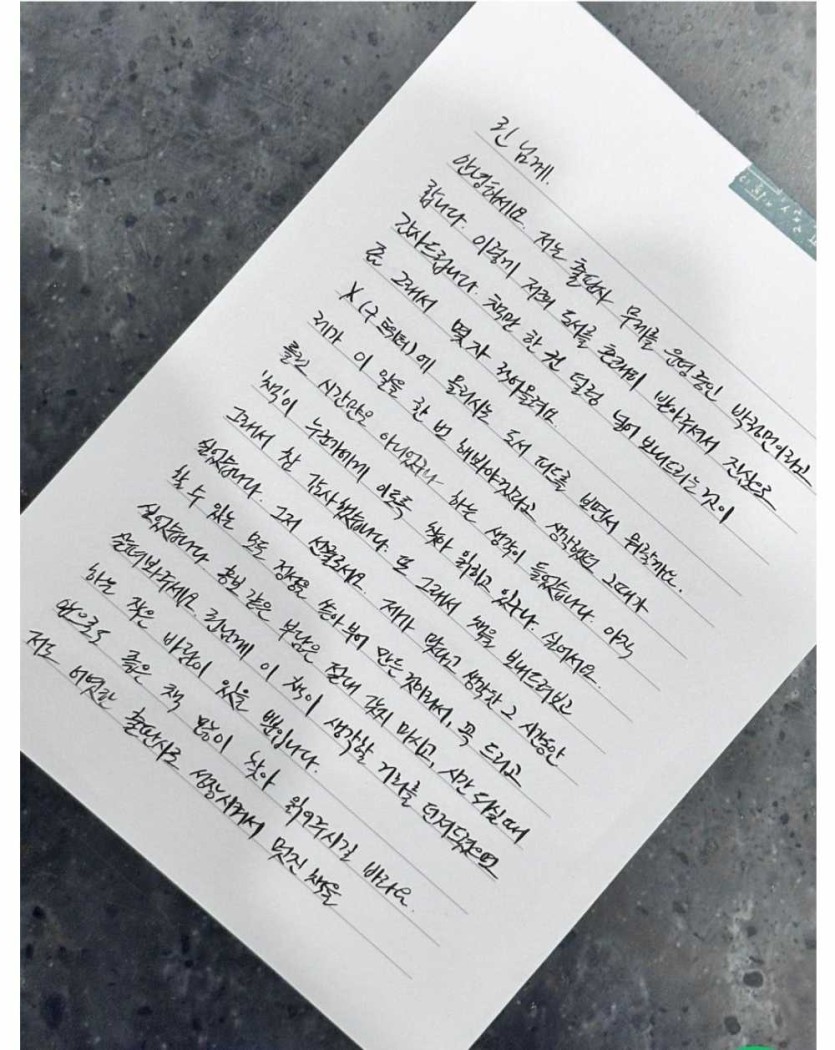 린 님께.
안녕하세요. 저는 출판사 무제를 운영중인 박정민이라고
합니다. 이렇게 저희 도서를 흔쾌히 받아주셔서 진심으로
감사드립니다. 책만 한 권 덜렁 넣어 보내드리는 것이
좀 그래서 몇 자 적어올려요.
X(구 트위터)에 올리시는 도서 피드를 보면서 뭐랄까요.
제가 이 일을 한 번 해봐야겠다고 생각했던 그때가
틀린 시간만은 아니었구나 하는 생각이 들었습니다. 아직
책이 누군가에게 이토록 찾아 읽히고 있구나. 싶어서요.
그래서 참 감사했습니다. 또 그래서 책을 보내드려보고
싶었습니다. 그저 선물로서요. 제가 맞다고 생각한 그 시간동안
할 수 있는 모든 정성을 쏟아 부어 만든 것이라서, 꼭 드리고
싶었습니다. 홍보 같은 부담은 절대 갖지 마시고, 시간 되실 때
살펴봐주세요. 린님께 이 책이 생각할 거리를 던져드렸으면
하는 작은 바람이 있을 뿐입니다.
앞으로도 좋은 책 많이 찾아 읽어주시길 바라요.
저도 어엿한 출판사로 성장시켜서 멋진 책을